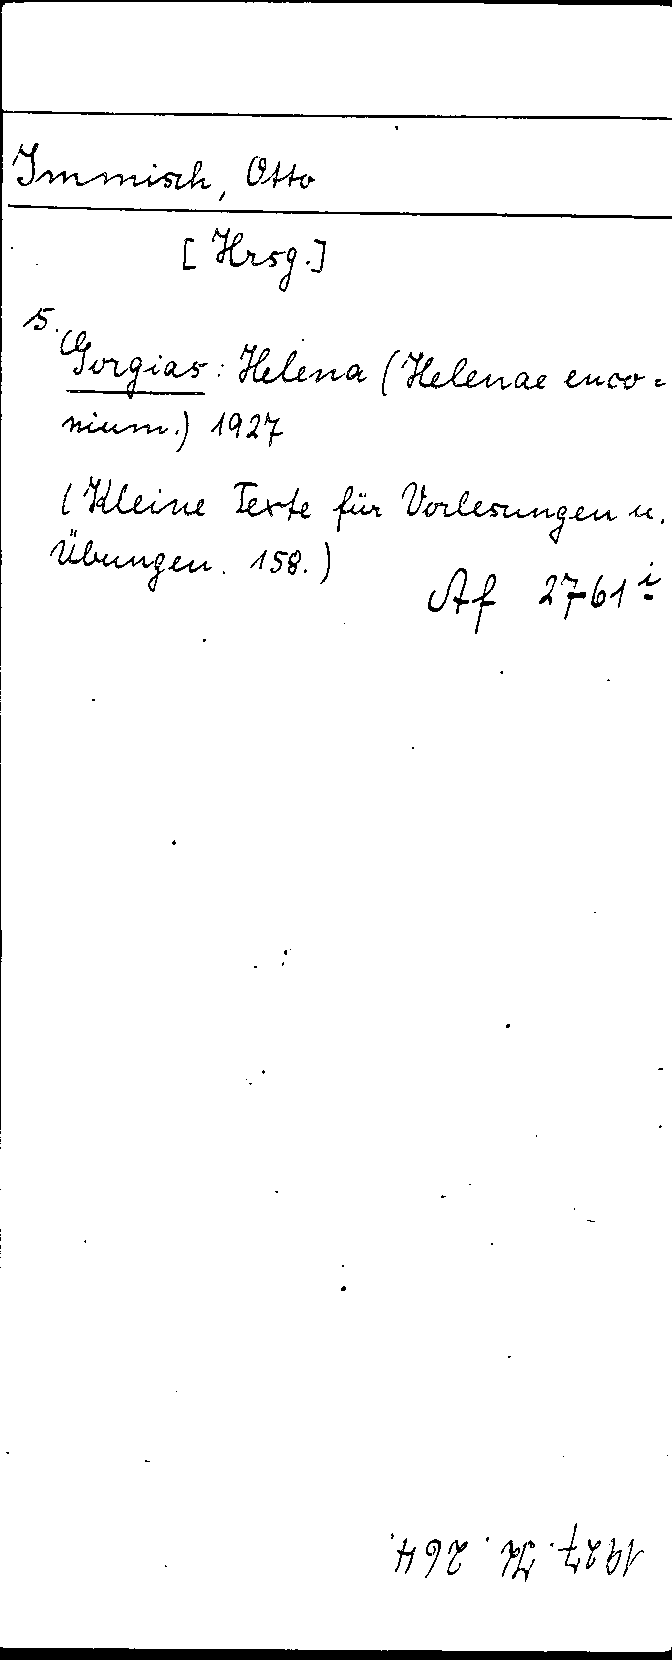 Immisch, Otto
[Hrsg.]
5.
Gorgias: Helena (Helenae enco=
nium.) 1927
(Kleine Texte für Vorlesungen u.
Übungen. 158.)
Af 2761 i
1927. 264.